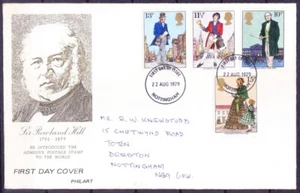 13P 11½P 10P
FIRST DAY OF ISSUE FIRST DAY OF ISSUE
22 AUG 1979 22 AUG 1979
NOTTINGHAM
Sir Rowland Hill
1795 - 1879
HE INTRODUCED THE
ADHESIVE POSTAGE STAMP
TO THE WORLD
FIRST DAY COVER
PHILART
MR. R. W
15 CHETWYND ROAD
TOTON
BEESTON
NOTTINGHAM